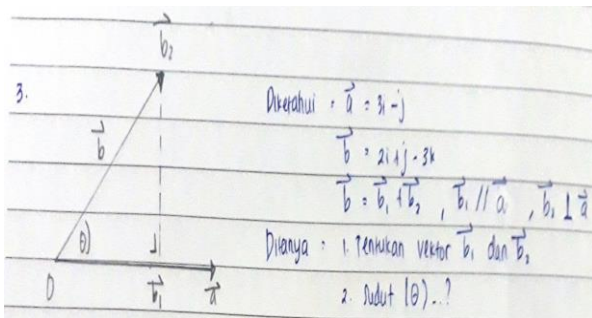 3.
b⃗₂
b⃗
θ
O
b⃗₁
a⃗
Diketahui : a⃗ = 3i - j
b⃗ = 2i + j - 3k
b⃗ = b⃗₁ + b⃗₂ , b⃗₁ // a⃗ , b⃗₂ ⊥ a⃗
Ditanya : 1. Tentukan vektor b⃗₁ dan b⃗₂
2. Sudut (θ)..?